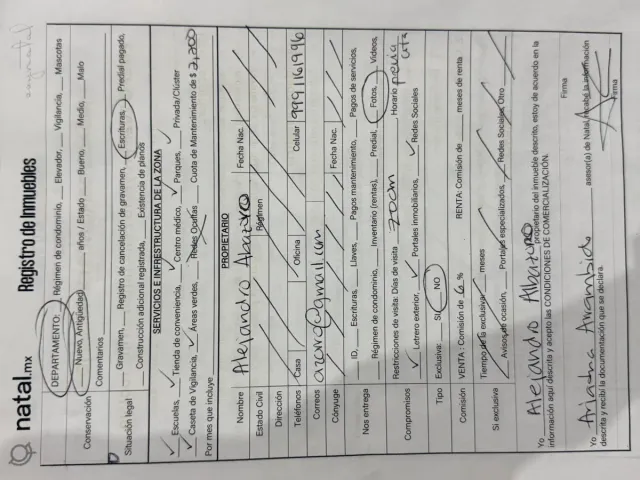 natal.mx Registro de Inmuebles
DEPARTAMENTO: Régimen de condominio, Elevador, Vigilancia, Mascotas
Conservación Nuevo, Antigüedad años / Estado Bueno, Medio, Malo
Comentarios
Situación legal Gravamen, Registro de cancelación de gravamen, Escrituras, Predial pagado,
Construcción adicional registrada, Existencia de planos
SERVICIOS E INFRESTRUCTURA DE LA ZONA
Escuelas, Tienda de conveniencia, Centro médico, Parques, Privada/Clúster
Caseta de Vigilancia, Áreas verdes, Redes Ocultas Cuota de Mantenimiento de $ 2,200
Por mes que incluye
PROPIETARIO
Nombre Alejandro Fecha Nac.
Estado Civil Régimen
Dirección
Teléfonos Casa Oficina Celular 9991161996
Correos @gmail.com
Cónyuge Fecha Nac.
Nos entrega ID, Escrituras, Llaves, Pagos mantenimiento, Pagos de servicios,
Régimen de condominio, Inventario (rentas), Predial, Fotos, Videos,
Restricciones de visita: Días de visita zoom Horario previa cita
Compromisos Letrero exterior, Portales inmobiliarios, Redes Sociales
Tipo Exclusiva: SI NO
Comisión VENTA: Comisión de 6 % RENTA: Comisión de meses de renta
Si exclusiva Tiempo de la exclusiva: meses
Avisos de ocasión, Portales especializados, Redes Sociales, Otro
Yo Alejandro propietario del inmueble descrito, estoy de acuerdo en la
información aquí descrita y acepto las CONDICIONES DE COMERCIALIZACIÓN.
Firma
Yo Ariadna Arrambide asesor(a) de Natal, recabé la información
descrita y recibí la documentación que se declara.
Firma